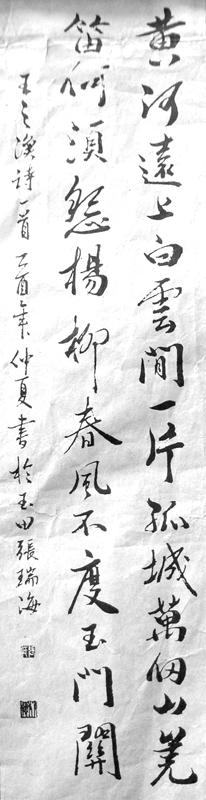 黄河遠上白雲間一片孤城萬仞山羌
笛何須怨楊柳春風不度玉門關
王之渙詩一首乙酉年仲夏書於玉田張瑞海